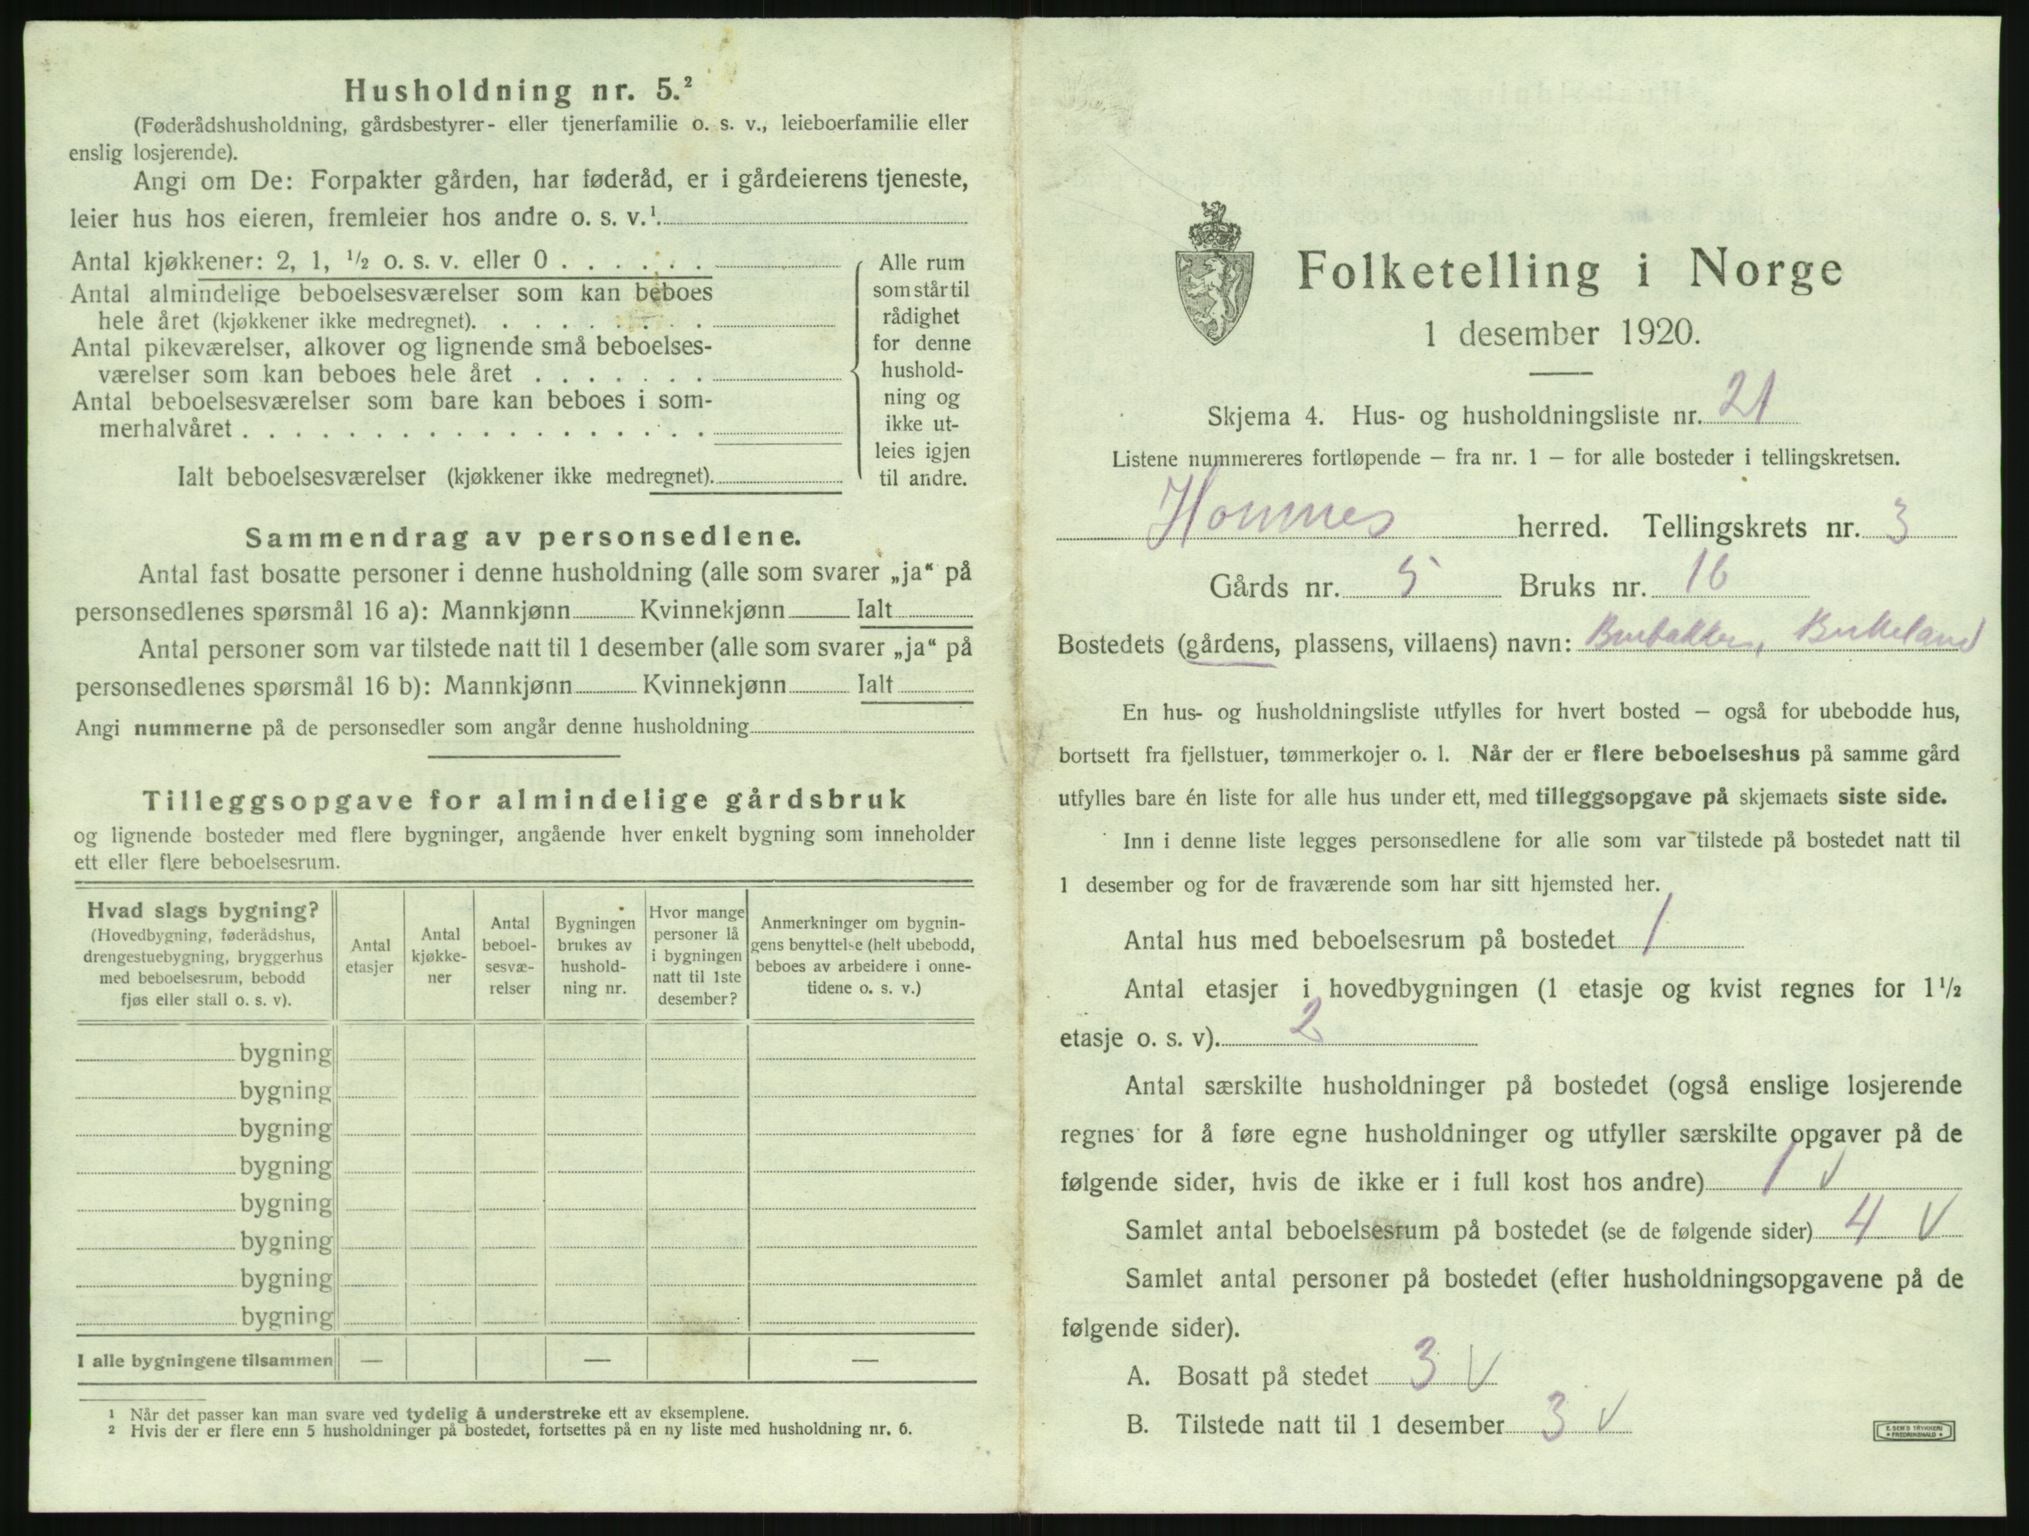 Husholdning nr. 5.²
(Føderådshusholdning, gårdsbestyrer- eller tjenerfamilie o. s. v., leieboerfamilie eller
enslig losjerende).
Angi om De: Forpakter gården, har føderåd, er i gårdeierens tjeneste,
leier hus hos eieren, fremleier hos andre o. s. v.¹
Antal kjøkkener: 2, 1, ½ o. s. v. eller 0 . . . . . .
Antal almindelige beboelsesværelser som kan beboes
hele året (kjøkkener ikke medregnet). . . . . . . . .
Antal pikeværelser, alkover og lignende små beboelses-
værelser som kan beboes hele året . . . . . . .
Antal beboelsesværelser som bare kan beboes i som-
merhalvåret . . . . . . . . . . . . . . . . . .
Ialt beboelsesværelser (kjøkkener ikke medregnet).
Alle rum
som står til
rådighet
for denne
hushold-
ning og
ikke ut-
leies igjen
til andre.
Sammendrag av personsedlene.
Antal fast bosatte personer i denne husholdning (alle som svarer „ja“ på
personsedlenes spørsmål 16 a): Mannkjønn Kvinnekjønn Ialt
Antal personer som var tilstede natt til 1 desember (alle som svarer „ja“ på
personsedlenes spørsmål 16 b): Mannkjønn Kvinnekjønn Ialt
Angi nummerne på de personsedler som angår denne husholdning
Tilleggsopgave for almindelige gårdsbruk
og lignende bosteder med flere bygninger, angående hver enkelt bygning som inneholder
ett eller flere beboelsesrum.
Hvad slags bygning?
(Hovedbygning, føderådshus,
drengestuebygning, bryggerhus
med beboelsesrum, bebodd
fjøs eller stall o. s. v).
Antal
etasjer
Antal
kjøkke-
ner
Antal
beboel-
sesvæ-
relser
Bygningen
brukes av
hushold-
ning nr.
Hvor mange
personer lå
i bygningen
natt til 1ste
desember?
Anmerkninger om bygnin-
gens benyttelse (helt ubebodd,
beboes av arbeidere i onne-
tidene o. s. v.)
bygning
bygning
bygning
bygning
bygning
bygning
bygning
bygning
I alle bygningene tilsammen — — —
¹ Når det passer kan man svare ved tydelig å understreke ett av eksemplene.
² Hvis der er flere enn 5 husholdninger på bostedet, fortsettes på en ny liste med husholdning nr. 6.
Folketelling i Norge
1 desember 1920.
Skjema 4. Hus- og husholdningsliste nr. 21
Listene nummereres fortløpende – fra nr. 1 – for alle bosteder i tellingskretsen.
Hommes herred. Tellingskrets nr. 3
Gårds nr. 5 Bruks nr. 16
Bostedets (gårdens, plassens, villaens) navn: Birkeland
En hus- og husholdningsliste utfylles for hvert bosted – også for ubebodde hus,
bortsett fra fjellstuer, tømmerkojer o. l. Når der er flere beboelseshus på samme gård
utfylles bare én liste for alle hus under ett, med tilleggsopgave på skjemaets siste side.
Inn i denne liste legges personsedlene for alle som var tilstede på bostedet natt til
1 desember og for de fraværende som har sitt hjemsted her.
Antal hus med beboelsesrum på bostedet 1
Antal etasjer i hovedbygningen (1 etasje og kvist regnes for 1½
etasje o. s. v). 2
Antal særskilte husholdninger på bostedet (også enslige losjerende
regnes for å føre egne husholdninger og utfyller særskilte opgaver på de
følgende sider, hvis de ikke er i full kost hos andre) 1 V
Samlet antal beboelsesrum på bostedet (se de følgende sider) 4 V
Samlet antal personer på bostedet (efter husholdningsopgavene på de
følgende sider).
A. Bosatt på stedet 3 V
B. Tilstede natt til 1 desember 3 V